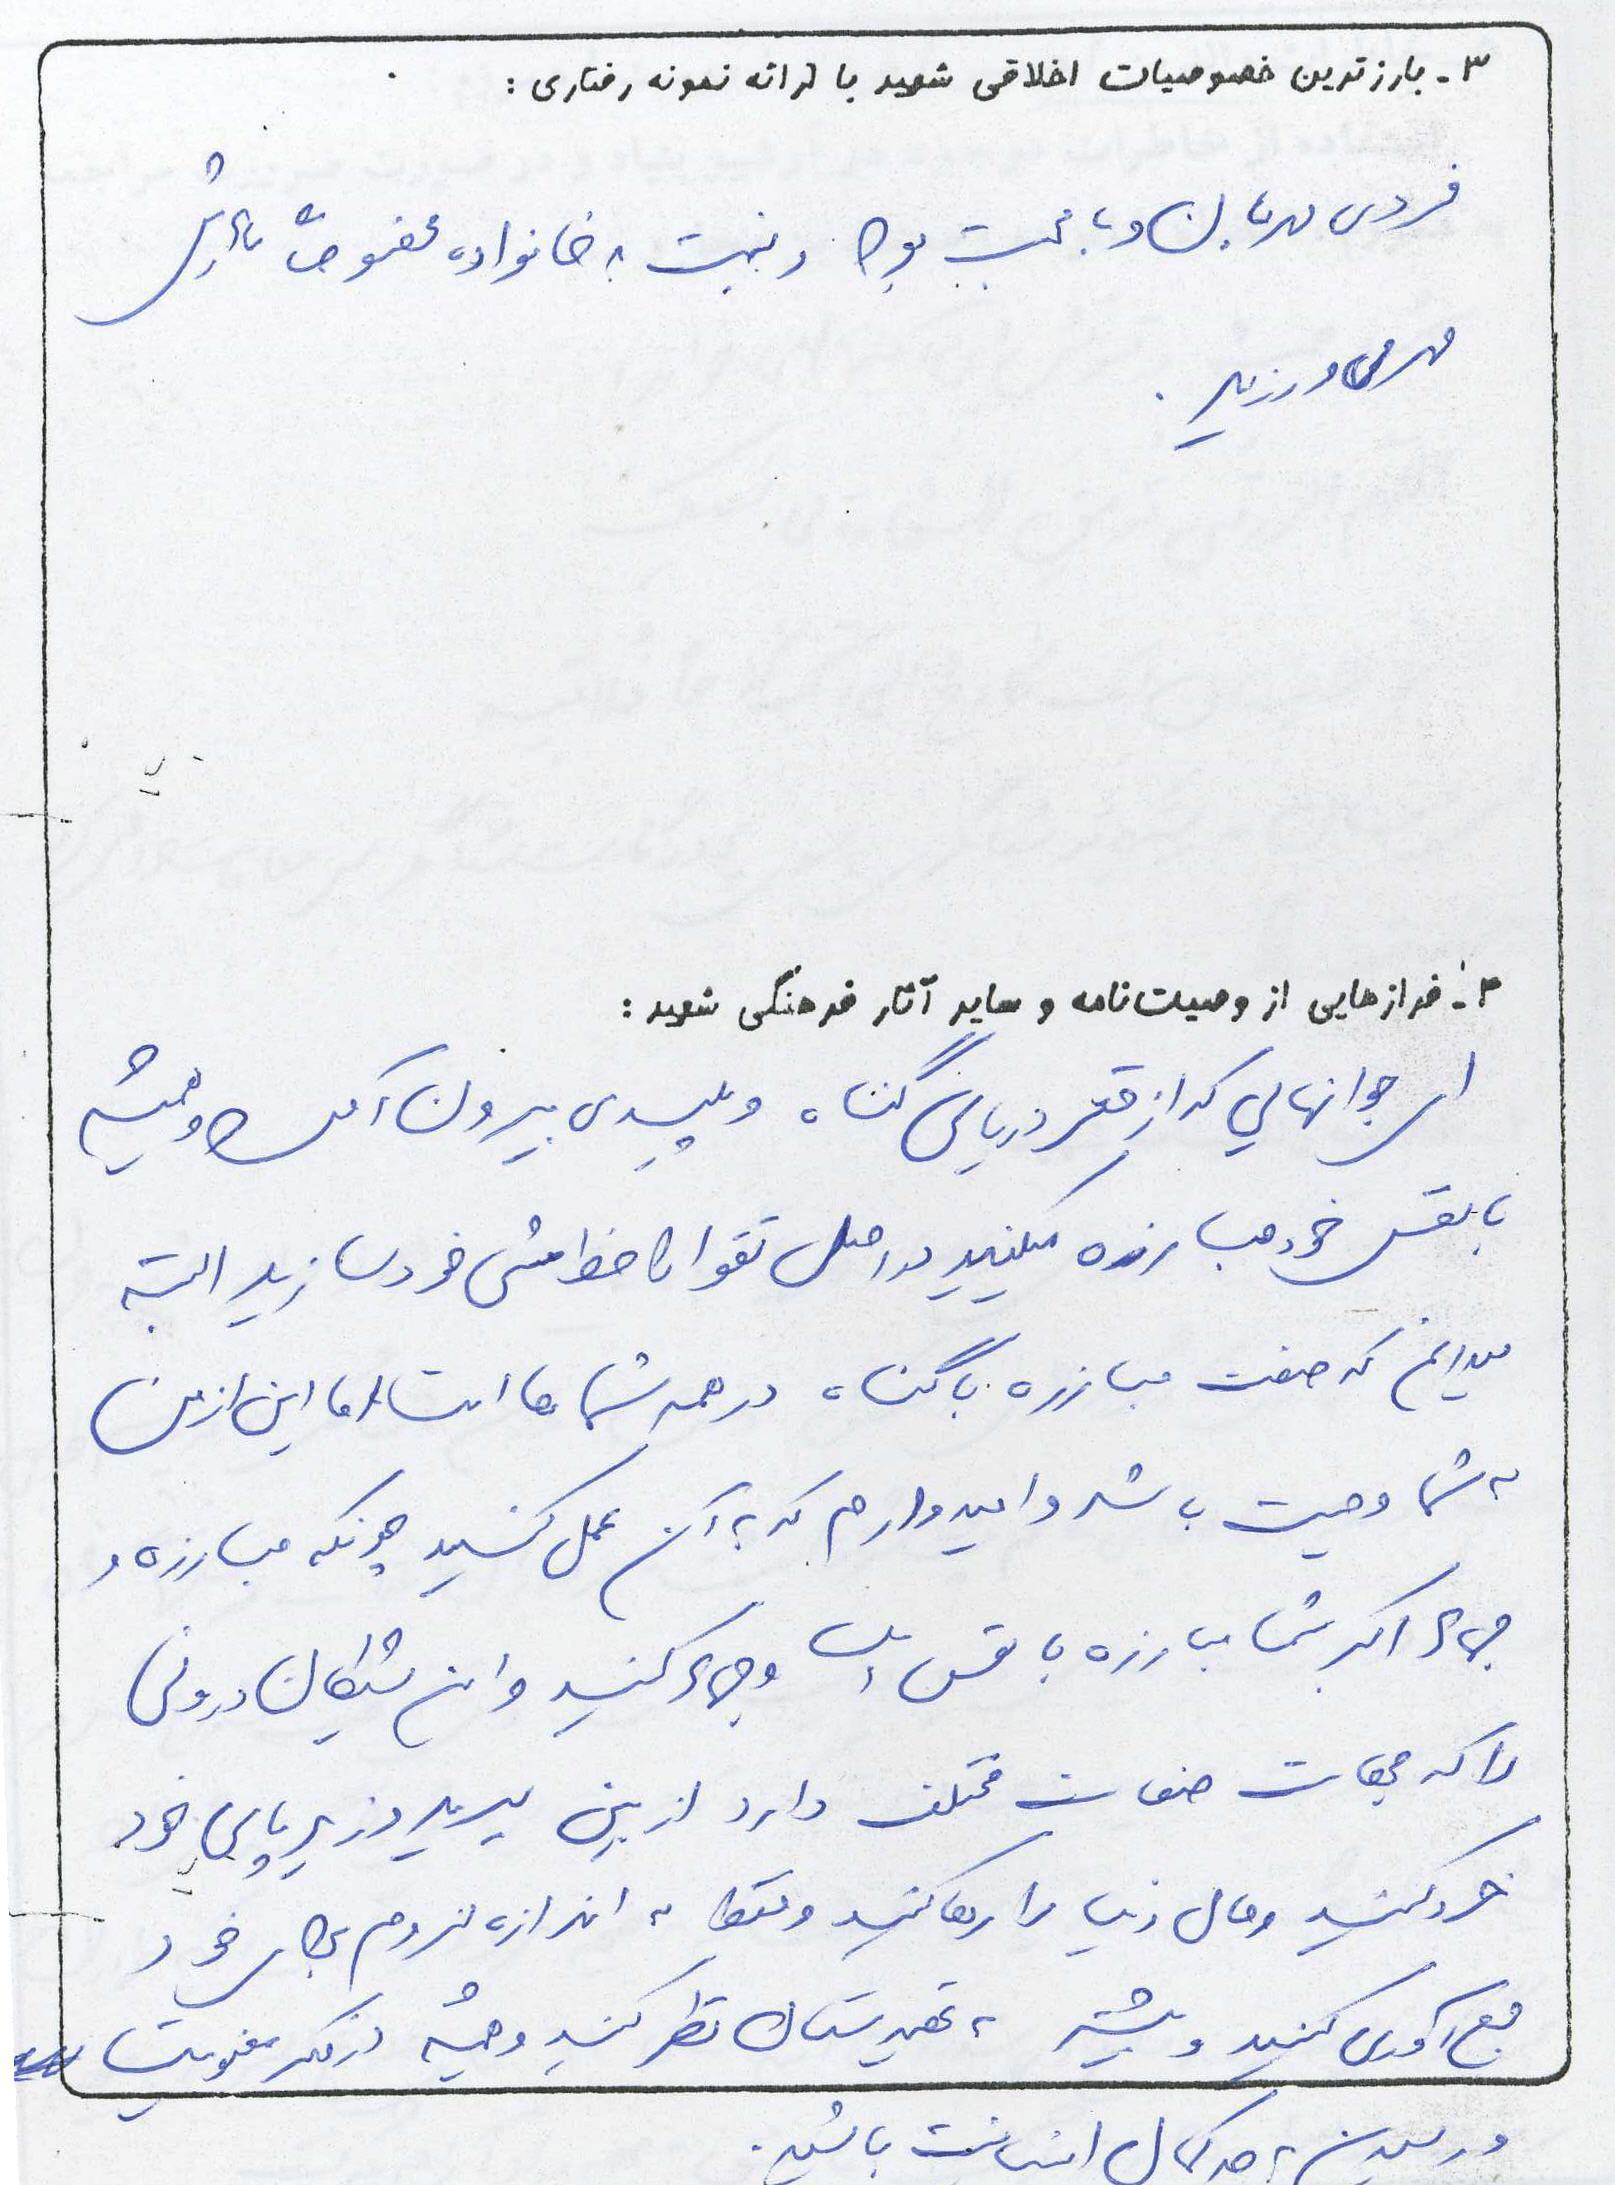 ۳- بارزترین خصوصیات اخلاقی شهید با ارائه نمونه رفتاری:
فردی مهربان و با محبت بود و نسبت به خانواده مخصوصاً مادرش
مهر می ورزید.
۴- فرازهایی از وصیت‌نامه و سایر آثار فرهنگی شهید:
ای جوانهایی که از قعر دریای گناه و پلیدی بیرون آمده و همیشه
با نفس خود مبارزه میکنید در اصل تقوا را خط مشی خود سازید البته
میدانم که صفت مبارزه با گناه در همه شما ها است اما این از من
به شما وصیت باشد و امیدوارم که به آن عمل کنید چونکه مبارزه و
جهاد اکبر شما مبارزه با نفس است و جهاد کنید و این شیطان درونی
را که صفات مختلف دارد از بین ببرید و زیر پای خود
خرد کنید و مال دنیا را رها کنید و فقط به اندازه لزوم برای خود
جمع آوری کنید و بیشتر به تهیدستان نظر کنید و همیشه در فکر معنویت
و رسیدن به حد کمال انسانیت باشید.